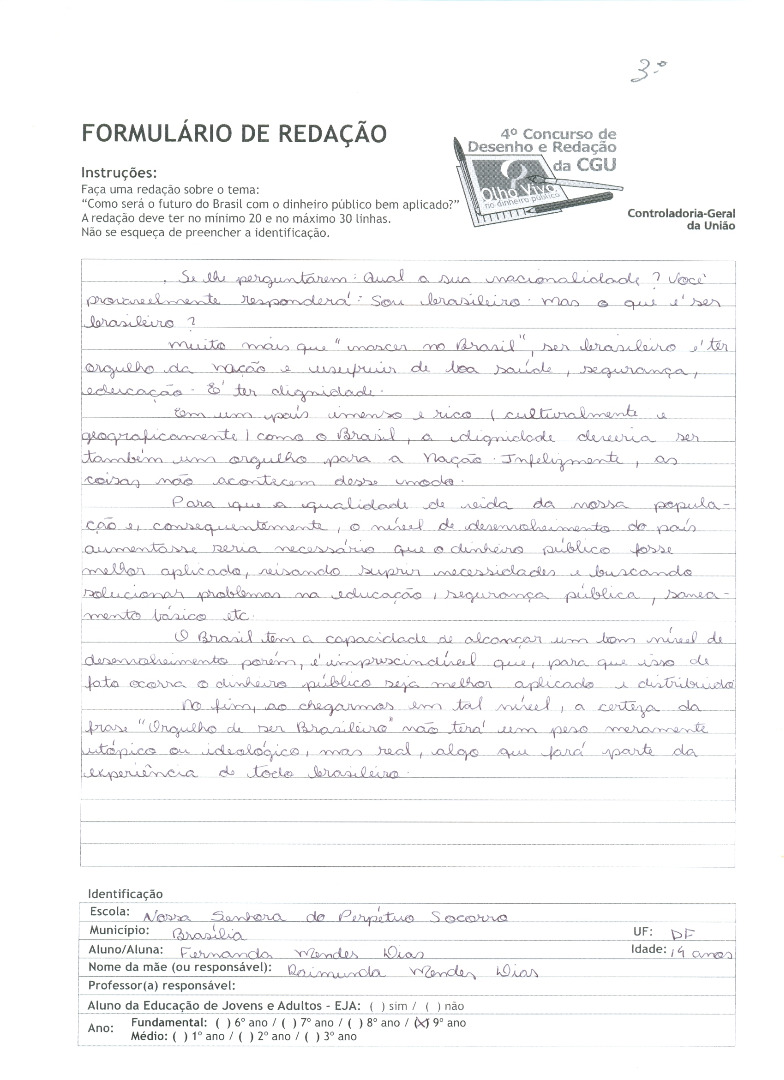 3º
FORMULÁRIO DE REDAÇÃO
4º Concurso de
Desenho e Redação
da CGU
Olho Vivo
no dinheiro público
Controladoria-Geral
da União
Instruções:
Faça uma redação sobre o tema:
“Como será o futuro do Brasil com o dinheiro público bem aplicado?”
A redação deve ter no mínimo 20 e no máximo 30 linhas.
Não se esqueça de preencher a identificação.
. Se lhe perguntarem: Qual a sua nacionalidade? Você
provavelmente responderá: Sou brasileiro. Mas o que é ser
brasileiro?
Muito mais que "nascer no Brasil", ser brasileiro é ter
orgulho da Nação e usufruir de boa saúde, segurança,
educação. É ter dignidade.
Em um país imenso e rico (culturalmente e
geograficamente) como o Brasil, a dignidade deveria ser
também um orgulho para a Nação. Infelizmente, as
coisas não acontecem desse modo.
Para que a qualidade de vida da nossa popula-
ção e, consequentemente, o nível de desenvolvimento do país
aumentasse seria necessário que o dinheiro público fosse
melhor aplicado, visando suprir necessidades e buscando
solucionar problemas na educação, segurança pública, sanea-
mento básico etc.
O Brasil tem a capacidade de alcançar um bom nível de
desenvolvimento porém, é imprescindível que, para que isso de
fato ocorra o dinheiro público seja melhor aplicado e distribuído
No fim, ao chegarmos em tal nível, a certeza da
frase "Orgulho de ser Brasileiro" não terá um peso meramente
utópico ou ideológico, mas real, algo que fará parte da
experiência de todo brasileiro.
Identificação
Escola: Nossa Senhora do Perpétuo Socorro
Município: Brasília UF: DF
Aluno/Aluna: Fernanda Mendes Dias Idade: 14 anos
Nome da mãe (ou responsável): Raimunda Mendes Dias
Professor(a) responsável:
Aluno da Educação de Jovens e Adultos – EJA: ( ) sim / ( ) não
Ano: Fundamental: ( ) 6º ano / ( ) 7º ano / ( ) 8º ano / (X) 9º ano
Médio: ( ) 1º ano / ( ) 2º ano / ( ) 3º ano